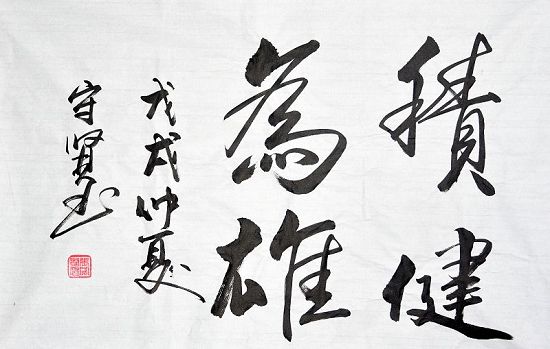 積健
為雄
戊戌仲夏
守贤书